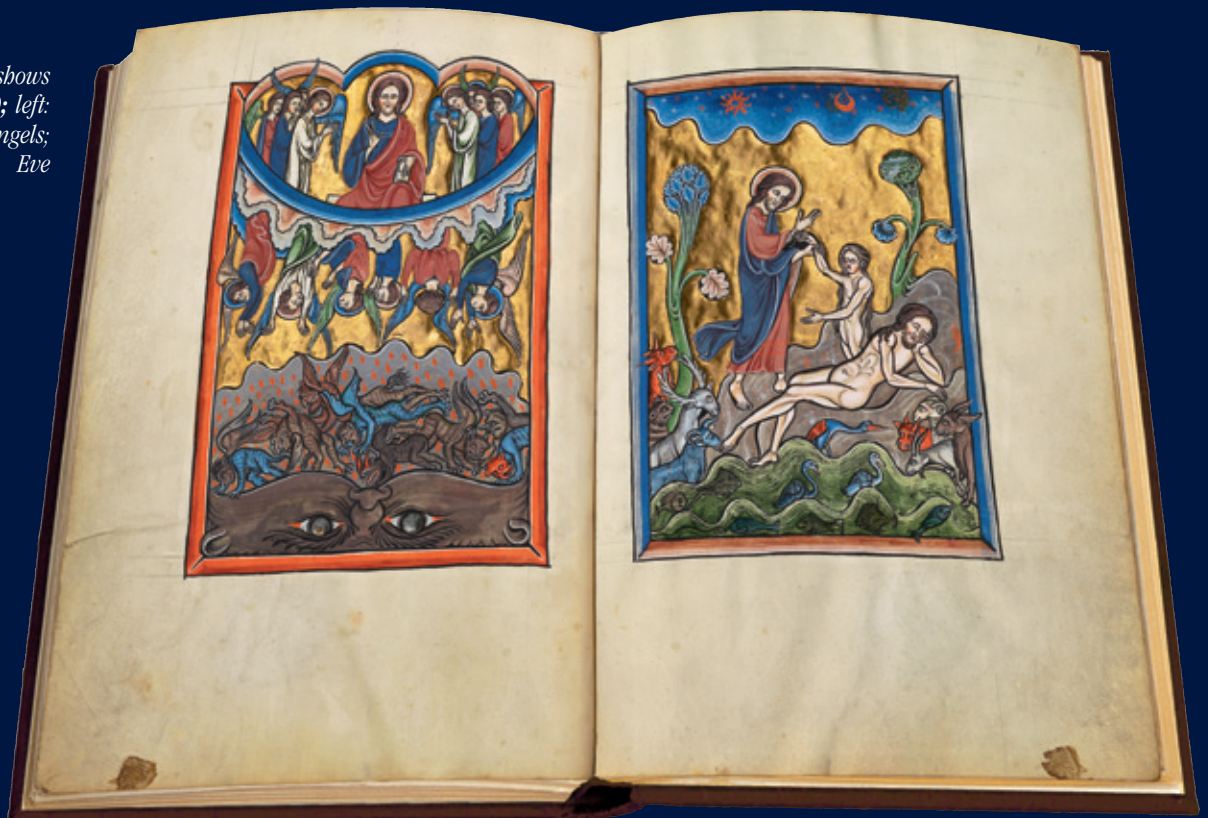 shows
; left:
ngels;
Eve